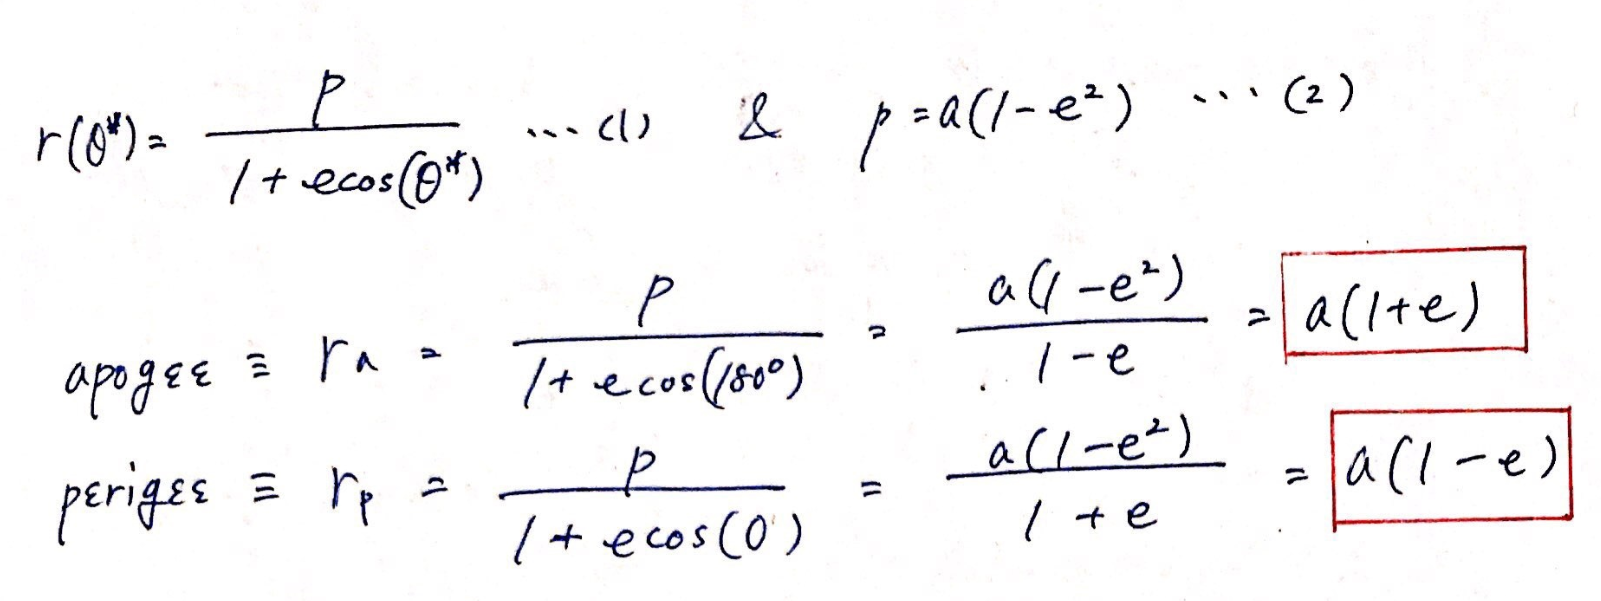 r(θ*) = p / (1 + ecos(θ*)) ... (1) & p = a(1 - e²) ... (2)
apogee ≡ ra = p / (1 + ecos(180°)) = a(1 - e²) / (1 - e) = a(1 + e)
perigee ≡ rp = p / (1 + ecos(0)) = a(1 - e²) / (1 + e) = a(1 - e)